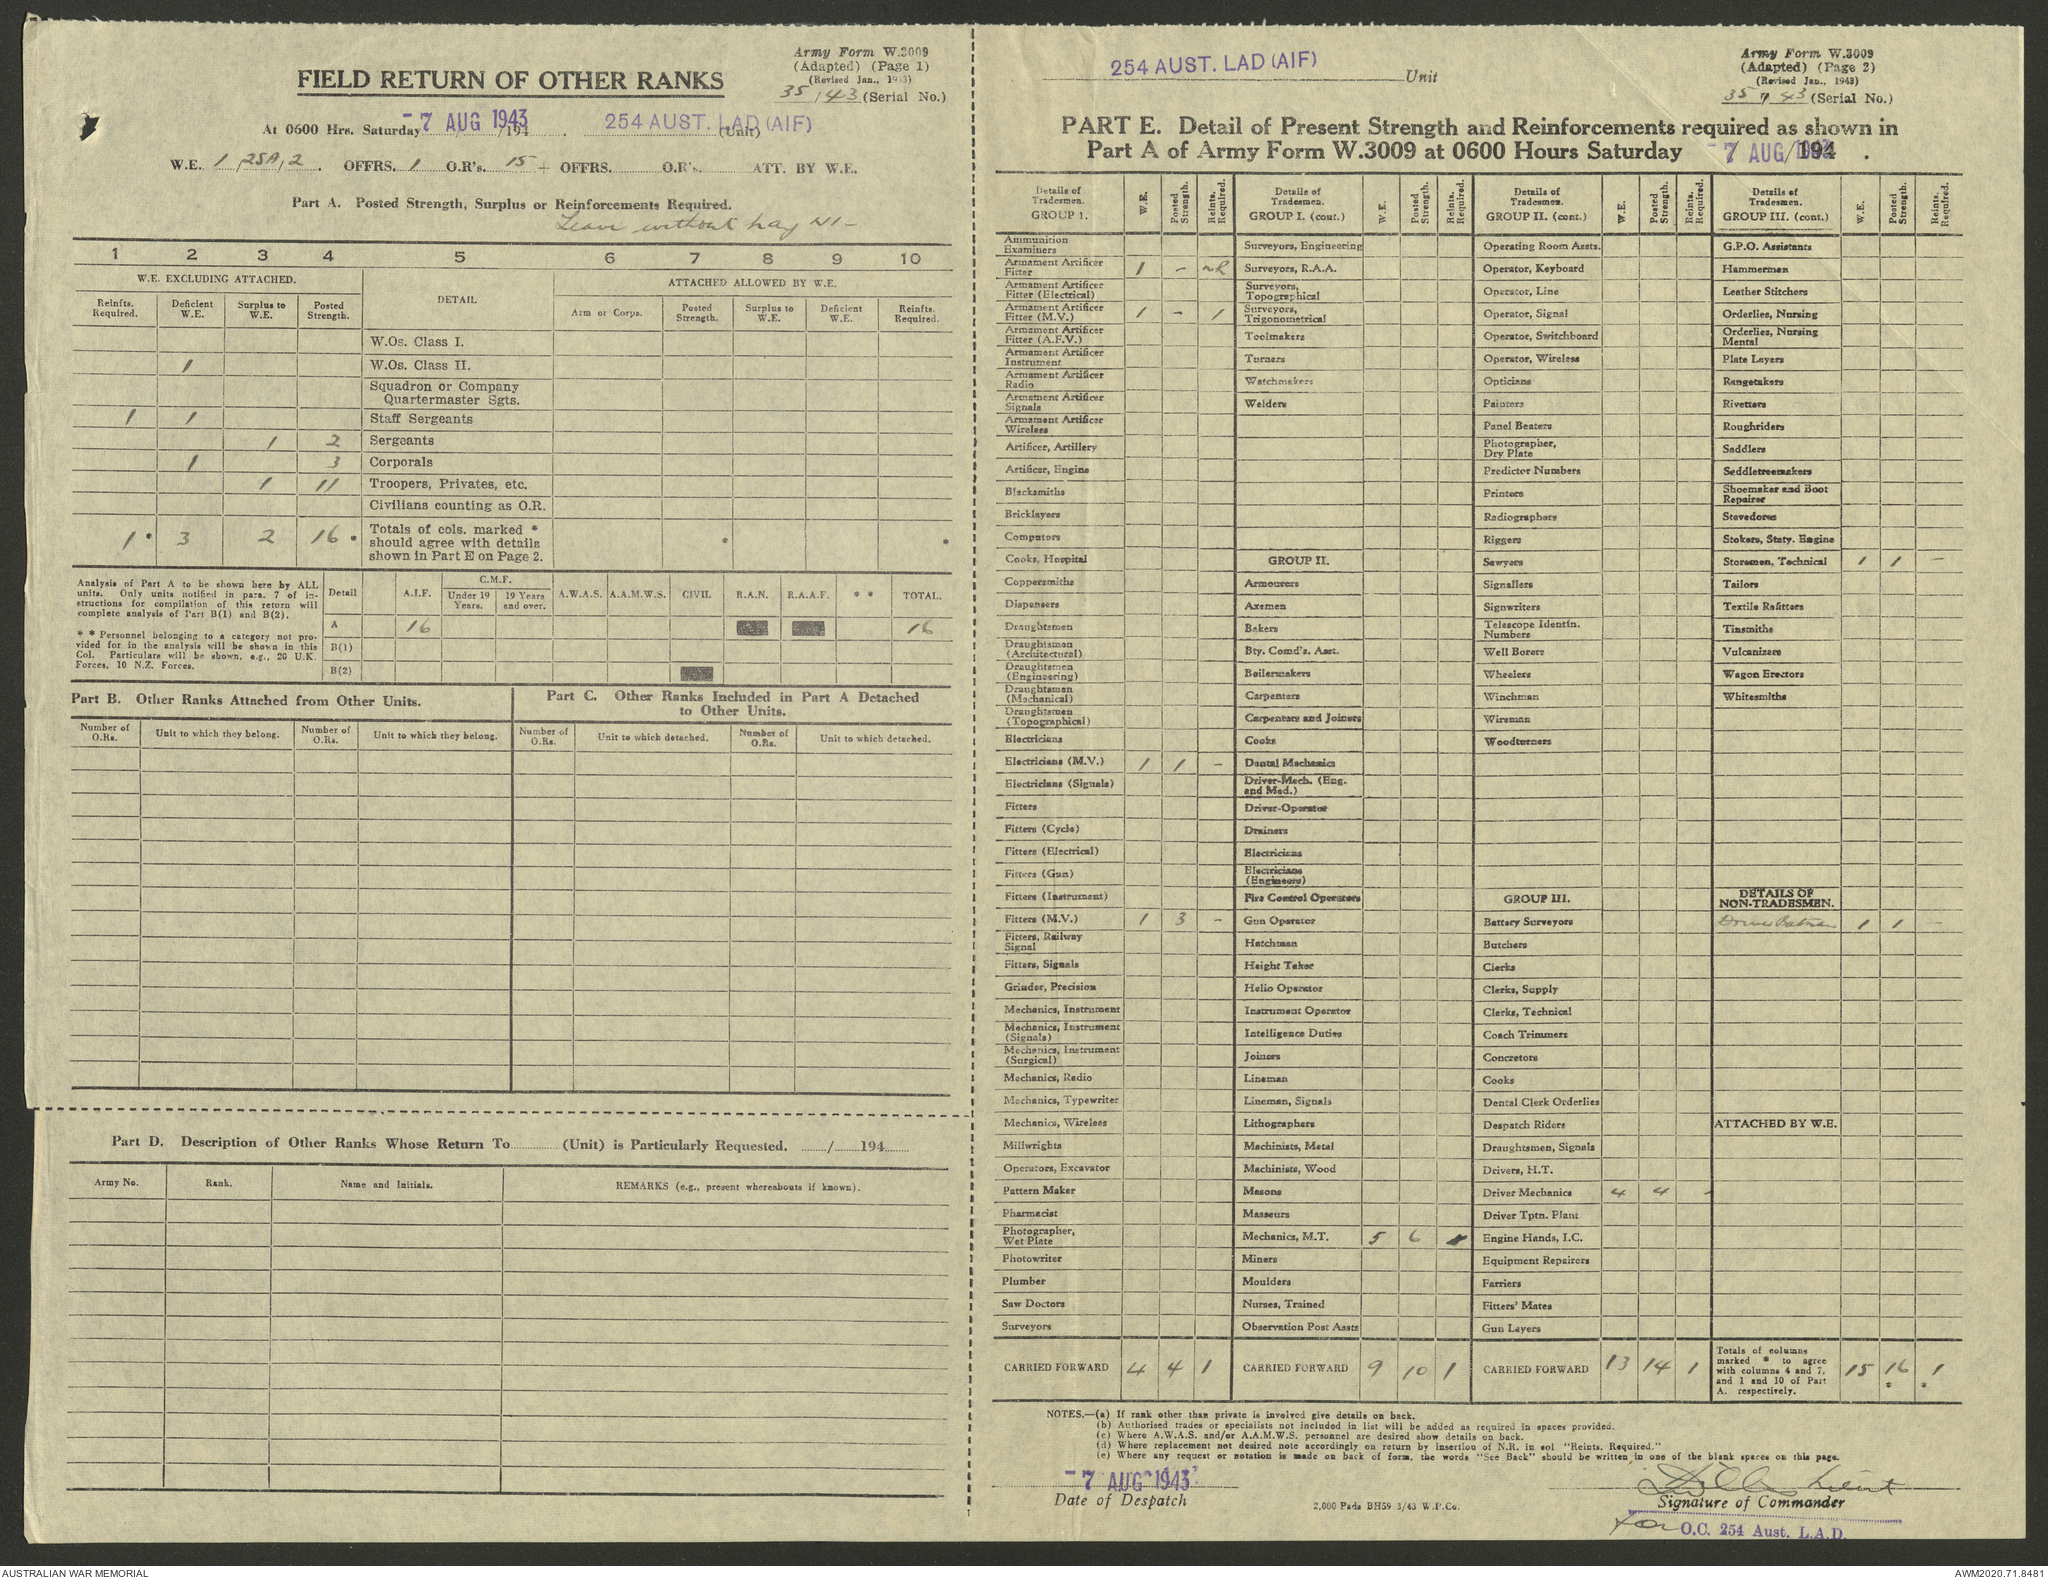 Army Form W.3009
(Adapted) (Page 1)
(Revised Jan., 1943)
35/43 (Serial No.)
FIELD RETURN OF OTHER RANKS
At 0600 Hrs. Saturday -7 AUG 1943 /194 . 254 AUST. LAD (AIF) (Unit)
W.E. 1/25A/2. OFFRS. 1 O.R's. 15 + OFFRS. O.R's. ATT. BY W.E.
Part A. Posted Strength, Surplus or Reinforcements Required.
Leave without pay NI-
1 2 3 4 5 6 7 8 9 10
W.E. EXCLUDING ATTACHED. DETAIL ATTACHED ALLOWED BY W.E.
Reinfts. Required. Deficient W.E. Surplus to W.E. Posted Strength. Arm or Corps. Posted Strength. Surplus to W.E. Deficient W.E. Reinfts. Required.
W.Os. Class I.
1 W.Os. Class II.
Squadron or Company
Quartermaster Sgts.
1 1 Staff Sergeants
1 2 Sergeants
1 3 Corporals
1 11 Troopers, Privates, etc.
Civilians counting as O.R.
1 * 3 2 16 * Totals of cols. marked *
should agree with details * *
shown in Part E on Page 2.
Analysis of Part A to be shown here by ALL
units. Only units notified in para. 7 of in-
structions for compilation of this return will
complete analysis of Part B(1) and B(2).
* * Personnel belonging to a category not pro-
vided for in the analysis will be shown in this
Col. Particulars will be shown, e.g., 20 U.K.
Forces, 10 N.Z. Forces.
Detail A.I.F. C.M.F. Under 19 Years. 19 Years and over. A.W.A.S. A.A.M.W.S. CIVIL R.A.N. R.A.A.F. * * TOTAL.
A 16 16
B(1)
B(2)
Part B. Other Ranks Attached from Other Units.
Number of O.Rs. Unit to which they belong. Number of O.Rs. Unit to which they belong.
Part C. Other Ranks Included in Part A Detached
to Other Units.
Number of O.Rs. Unit to which detached. Number of O.Rs. Unit to which detached.
Part D. Description of Other Ranks Whose Return To (Unit) is Particularly Requested. / 194
Army No. Rank. Name and Initials. REMARKS (e.g., present whereabouts if known).
254 AUST. LAD (AIF) Unit
Army Form W.3009
(Adapted) (Page 2)
(Revised Jan., 1943)
35/43 (Serial No.)
PART E. Detail of Present Strength and Reinforcements required as shown in
Part A of Army Form W.3009 at 0600 Hours Saturday -7 AUG 1943 /194 .
Details of Tradesmen. GROUP 1. W.E. Posted Strength. Reints. Required.
Ammunition Examiners
Armament Artificer Fitter 1 - NR
Armament Artificer Fitter (Electrical)
Armament Artificer Fitter (M.V.) 1 - 1
Armament Artificer Fitter (A.F.V.)
Armament Artificer Instrument
Armament Artificer Radio
Armament Artificer Signals
Armament Artificer Wireless
Artificer, Artillery
Artificer, Engine
Blacksmiths
Bricklayers
Computors
Cooks, Hospital
Coppersmiths
Dispensers
Draughtsmen
Draughtsmen (Architectural)
Draughtsmen (Engineering)
Draughtsmen (Mechanical)
Draughtsmen (Topographical)
Electricians
Electricians (M.V.) 1 1 -
Electricians (Signals)
Fitters
Fitters (Cycle)
Fitters (Electrical)
Fitters (Gun)
Fitters (Instrument)
Fitters (M.V.) 1 3 -
Fitters, Railway Signal
Fitters, Signals
Grinder, Precision
Mechanics, Instrument
Mechanics, Instrument (Signals)
Mechanics, Instrument (Surgical)
Mechanics, Radio
Mechanics, Typewriter
Mechanics, Wireless
Millwrights
Operators, Excavator
Pattern Maker
Pharmacist
Photographer, Wet Plate
Photowriter
Plumber
Saw Doctors
Surveyors
CARRIED FORWARD 4 4 1
Details of Tradesmen. GROUP I. (cont.) W.E. Posted Strength. Reints. Required.
Surveyors, Engineering
Surveyors, R.A.A.
Surveyors, Topographical
Surveyors, Trigonometrical
Toolmakers
Turners
Watchmakers
Welders
GROUP II.
Armourers
Axemen
Bakers
Bty. Comd's. Asst.
Boilermakers
Carpenters
Carpenters and Joiners
Cooks
Dental Mechanics
Driver-Mech. (Eng. and Med.)
Driver-Operator
Drainers
Electricians
Electricians (Engineers)
Fire Control Operators
Gun Operator
Hatchman
Height Taker
Helio Operator
Instrument Operator
Intelligence Duties
Joiners
Lineman
Lineman, Signals
Lithographers
Machinists, Metal
Machinists, Wood
Masons
Masseurs
Mechanics, M.T. 5 6
Miners
Moulders
Nurses, Trained
Observation Post Assts
CARRIED FORWARD 9 10 1
Details of Tradesmen. GROUP II. (cont.) W.E. Posted Strength. Reints. Required.
Operating Room Assts.
Operator, Keyboard
Operator, Line
Operator, Signal
Operator, Switchboard
Operator, Wireless
Opticians
Painters
Panel Beaters
Photographer, Dry Plate
Predictor Numbers
Printers
Radiographers
Riggers
Sawyers
Signallers
Signwriters
Telescope Identfn. Numbers
Well Borers
Wheelers
Winchman
Wireman
Woodturners
GROUP III.
Battery Surveyors
Butchers
Clerks
Clerks, Supply
Clerks, Technical
Coach Trimmers
Concretors
Cooks
Dental Clerk Orderlies
Despatch Riders
Draughtsmen, Signals
Drivers, H.T.
Driver Mechanics 4 4 -
Driver Tptn. Plant
Engine Hands, I.C.
Equipment Repairers
Farriers
Fitters' Mates
Gun Layers
CARRIED FORWARD 13 14 1
Details of Tradesmen. GROUP III. (cont.) W.E. Posted Strength. Reints. Required.
G.P.O. Assistants
Hammermen
Leather Stitchers
Orderlies, Nursing
Orderlies, Nursing Mental
Plate Layers
Rangetakers
Rivetters
Roughriders
Saddlers
Saddletreemakers
Shoemaker and Boot Repairer
Stevedores
Stokers, Staty. Engine
Storemen, Technical 1 1 -
Tailors
Textile Refitters
Tinsmiths
Vulcanizers
Wagon Erectors
Whitesmiths
DETAILS OF NON-TRADESMEN.
Driver Batman 1 1 -
ATTACHED BY W.E.
Totals of columns
marked * to agree
with columns 4 and 7,
and 1 and 10 of Part
A. respectively.
15 16 * 1 *
NOTES.—(a) If rank other than private is involved give details on back.
(b) Authorised trades or specialists not included in list will be added as required in spaces provided.
(c) Where A.W.A.S. and/or A.A.M.W.S. personnel are desired show details on back.
(d) Where replacement not desired note accordingly on return by insertion of N.R. in col "Reints. Required."
(e) Where any request or notation is made on back of form, the words "See Back" should be written in one of the blank spaces on this page.
-7 AUG 1943
Date of Despatch
2,000 Pads BH59 3/43 W.P.Co.
Lieut
Signature of Commander
for O.C. 254 Aust. L.A.D.
AUSTRALIAN WAR MEMORIAL
AWM2020.71.8481